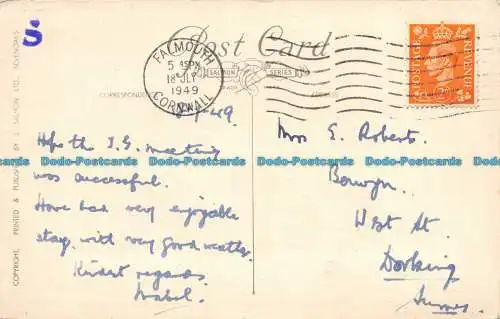 S.
Post Card
FALMOUTH
5 45PM
18 JLY
1949
CORNWALL
POSTAGE
REVENUE
SALMON SERIES
TRADE MARK
CORRESPONDENCE
ADDRESS
COPYRIGHT. PRINTED & PUBLISHED BY J. SALMON LTD., SEVENOAKS
18-7-49.
Hope the I.G. meeting
was successful.
Have had very enjoyable
stay, with very good weather.
Kindest regards.
Mabel.
Mrs E. Roberts.
Berwyn.
West St.
Dorking
Surrey.
Dodo-Postcards Dodo-Postcards Dodo-Postcards Dodo-Postcards
Dodo-Postcards Dodo-Postcards Dodo-Postcards Dodo-Postcards